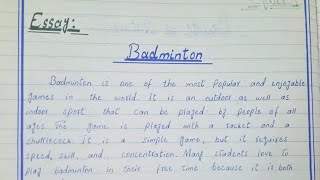 Essay:
Badminton
Badminton is one of the most popular and enjoyable
games in the world. It is an outdoor as well as
indoor sport that can be played by people of all
ages. The game is played with a racket and a
shuttlecock. It is a simple game, but it requires
speed, skill, and concentration. Many students love to
play badminton in their free time because it is both